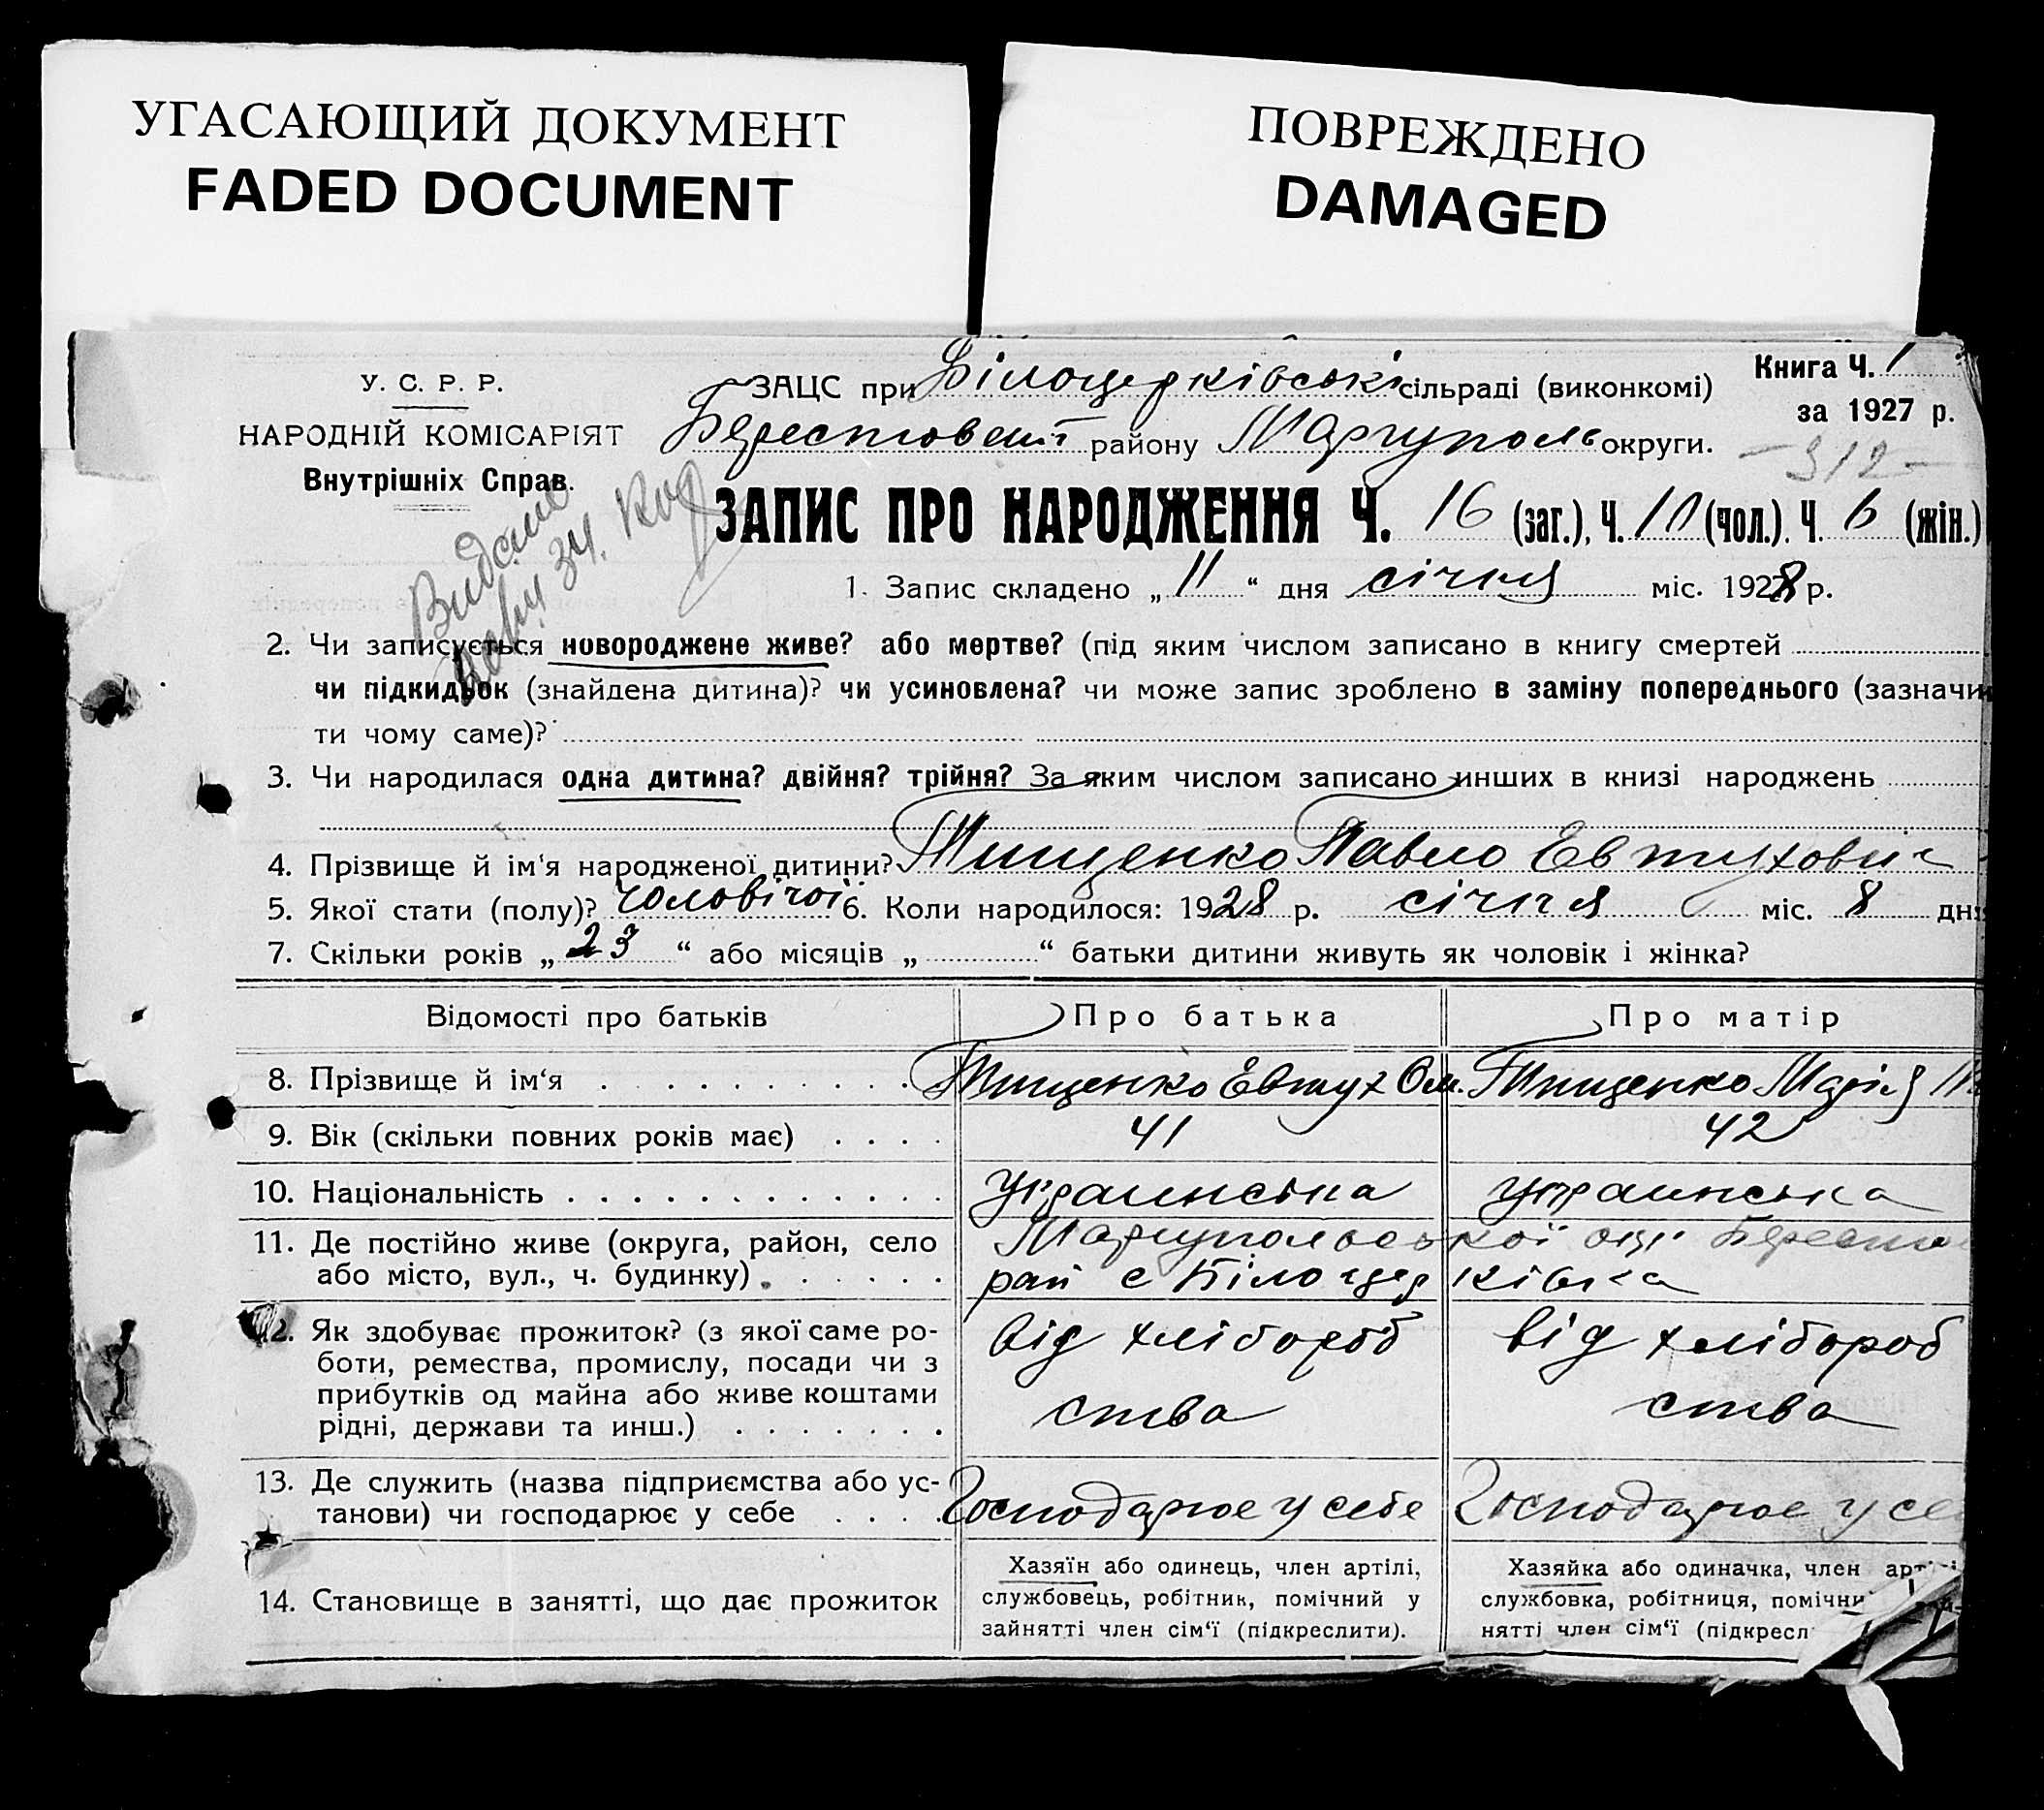 УГАСАЮЩИЙ ДОКУМЕНТ
FADED DOCUMENT
ПОВРЕЖДЕНО
DAMAGED
У. С. Р. Р.
НАРОДНІЙ КОМІСАРІЯТ
Внутрішніх Справ.
ЗАЦС при Білоцерківські сільраді (виконкомі)
Берестовськ району Маріуполь округи.
Книга Ч. 1
за 1927 р.
- 312 -
Видано
ЗАПИС ПРО НАРОДЖЕННЯ Ч. 16 (заг.), Ч. 10 (чол.). Ч. 6 (жін.)
1. Запис складено „ 11 “ дня січня міс. 1928 р.
2. Чи записується новороджене живе? або мертве? (під яким числом записано в книгу смертей
чи підкидьок (знайдена дитина)? чи усиновлена? чи може запис зроблено в заміну попереднього (зазначи
ти чому саме)?
3. Чи народилася одна дитина? двійня? трійня? За яким числом записано инших в книзі народжень
4. Прізвище й ім‘я народженої дитини? Тищенко Павло Евтухович
5. Якої стати (полу)? чоловічої 6. Коли народилося: 1928 р. січня міс. 8 дня
7. Скільки років „ 23 “ або місяців „ “ батьки дитини живуть як чоловік і жінка?
Відомості про батьків Про батька Про матір
8. Прізвище й ім‘я Тищенко Евтух Ом. Тищенко Марія
9. Вік (скільки повних років має) 41 42
10. Національність украинська украинська
11. Де постійно живе (округа, район, село Маріупольської окр. Бересто
або місто, вул., ч. будинку) рай с Білоцерківка
12. Як здобуває прожиток? (з якої саме ро- від хлібороб від хлібороб
боти, ремества, промислу, посади чи з
прибутків од майна або живе коштами ства ства
рідні, держави та инш.)
13. Де служить (назва підприємства або ус-
танови) чи господарює у себе Господарює у себе Господарює у се
14. Становище в занятті, що дає прожиток
Хазяїн або одинець, член артілі,
службовець, робітник, помічний у
зайнятті член сім‘ї (підкреслити).
Хазяйка або одиначка, член артілі
службовка, робітниця, помічни
нятті член сім‘ї (підкресл